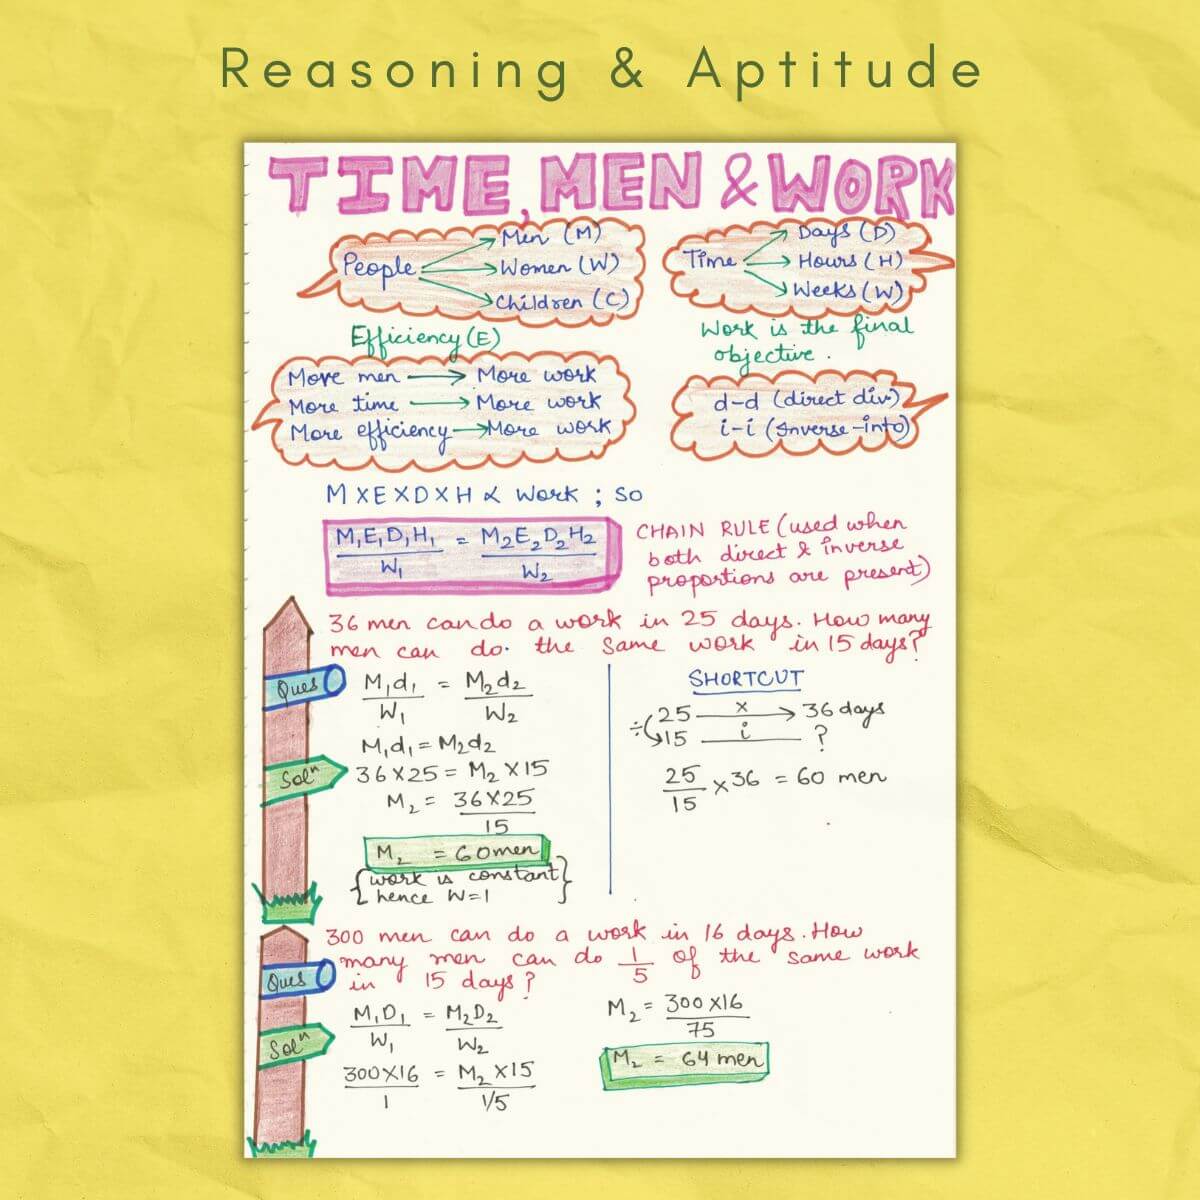 Reasoning & Aptitude
TIME, MEN & WORK
People
Men (M)
Women (W)
Children (C)
Time
Days (D)
Hours (H)
Weeks (W)
Efficiency (E)
Work is the final
objective.
More men → More work
More time → More work
More efficiency → More work
d-d (direct div)
i-i (Inverse-into)
M X E X D X H ∝ Work ; SO
M₁E₁D₁H₁/W₁ = M₂E₂D₂H₂/W₂
CHAIN RULE (used when
both direct & inverse
proportions are present)
36 men can do a work in 25 days. How many
men can do. the same work in 15 days?
Ques
M₁d₁/W₁ = M₂d₂/W₂
M₁d₁ = M₂d₂
Solⁿ
36 X 25 = M₂ X 15
M₂ = 36X25/15
M₂ = 60 men
{work is constant
hence W=1}
SHORTCUT
÷ 25 —x→ 36 days
15 —i— ?
25/15 X 36 = 60 men
300 men can do a work in 16 days. How
many men can do 1/5 of the same work
in 15 days?
Ques
M₁D₁/W₁ = M₂D₂/W₂
Solⁿ
300X16/1 = M₂ X 15/1/5
M₂ = 300 X16/75
M₂ = 64 men